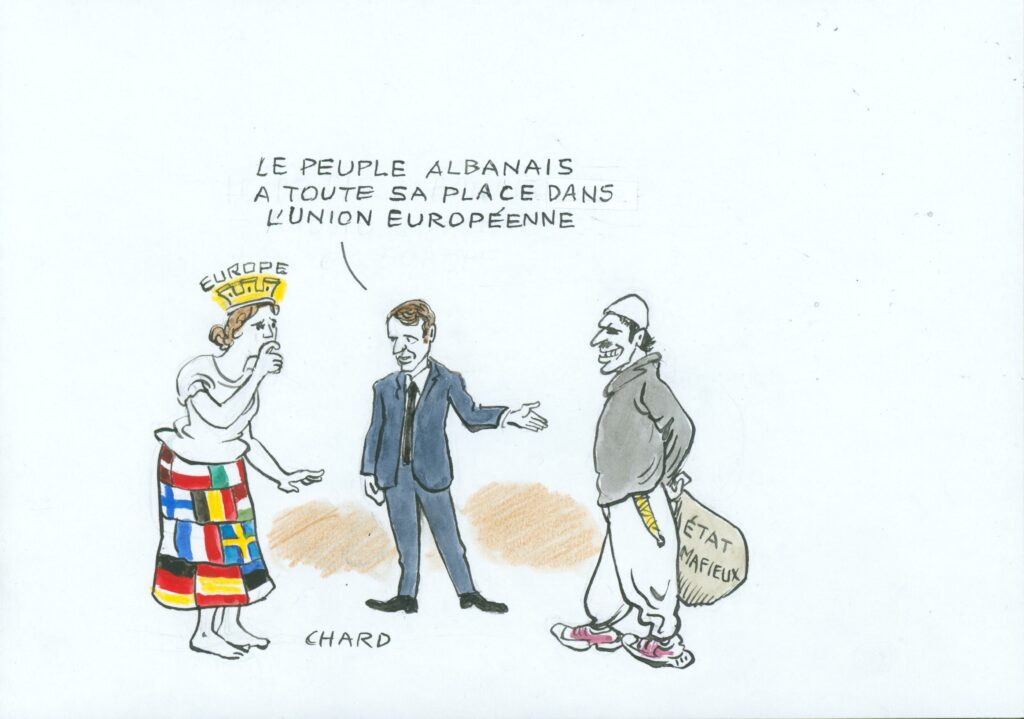 LE PEUPLE ALBANAIS
A TOUTE SA PLACE DANS
L'UNION EUROPÉENNE
EUROPE
ÉTAT
MAFIEUX
CHARD